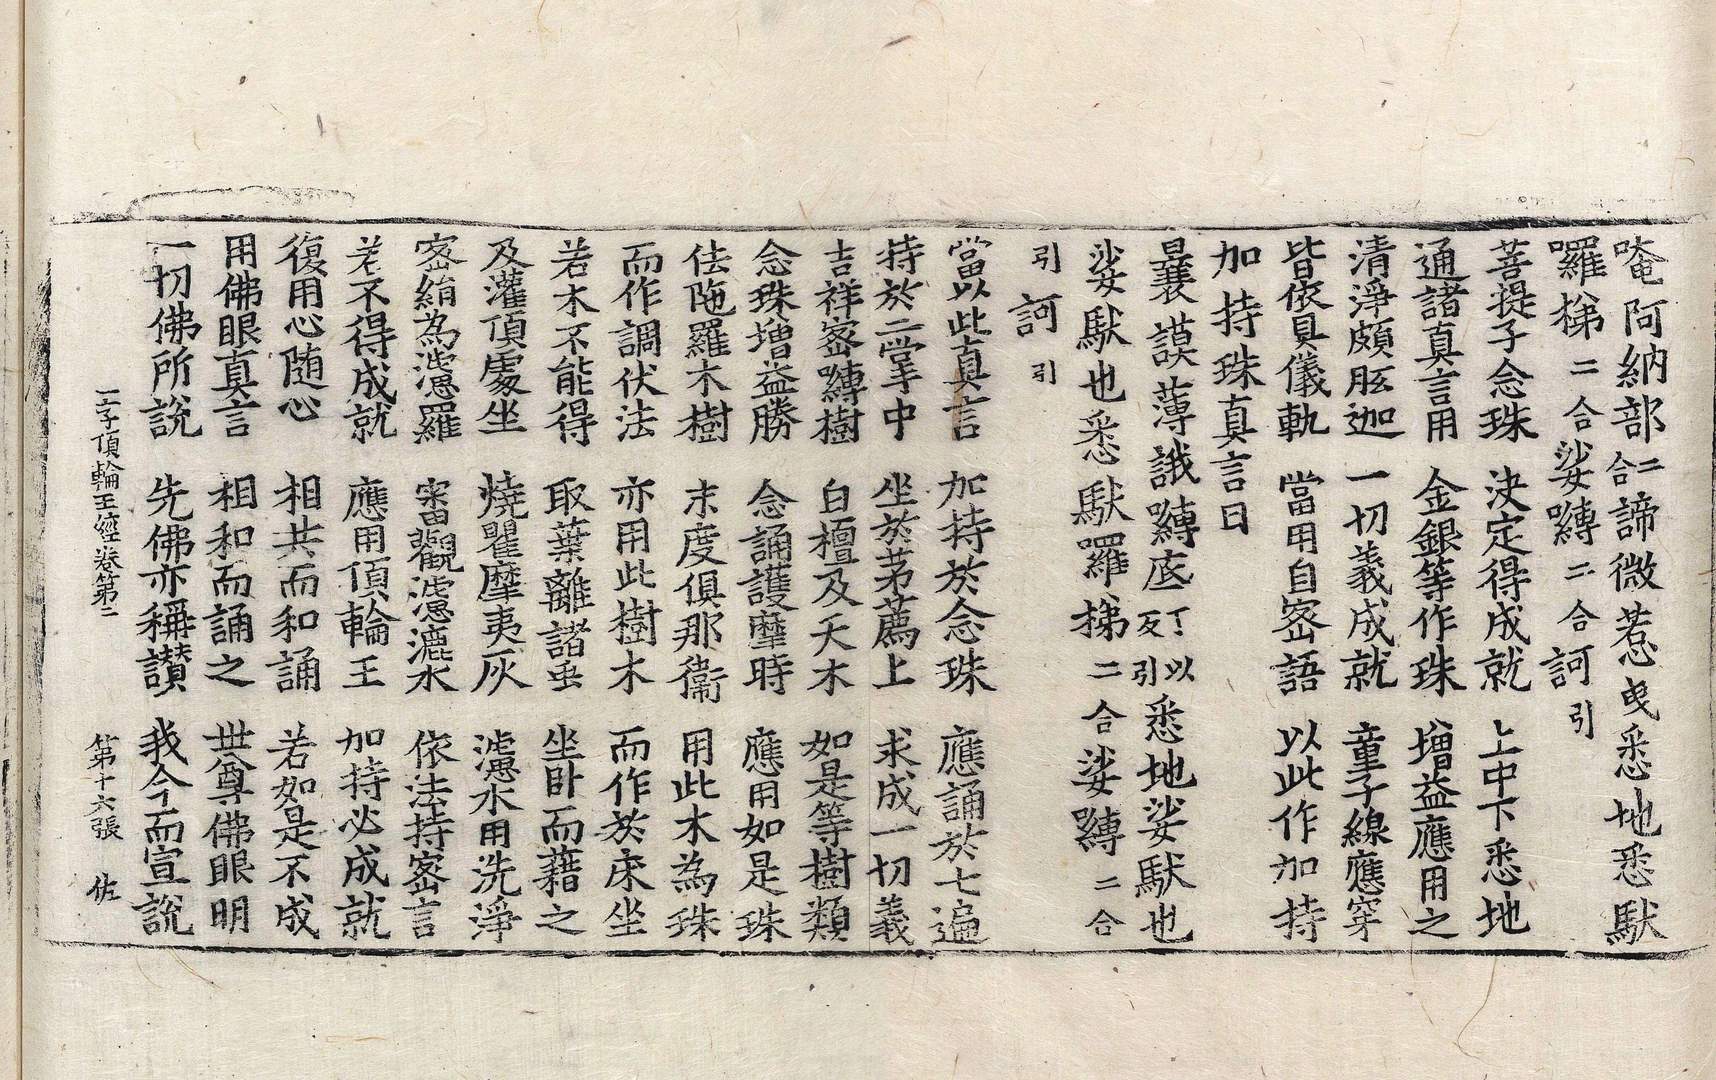 唵阿納部二合諦微惹曳悉地悉馱
囉梯二合娑嚩二合訶引
菩提子念珠 決定得成就 上中下悉地
通諸真言用 金銀等作珠 增益應用之
清淨頗胝迦 一切義成就 童子線應穿
皆依具儀軌 當用自密語 以此作加持
加持珠真言曰
曩謨薄誐嚩底丁以反引悉地娑馱也
娑馱也悉馱囉梯二合娑嚩二合
引訶引
當以此真言 加持於念珠 應誦於七遍
持於二掌中 坐於茅薦上 求成一切義
吉祥密嚩樹 白檀及天木 如是等樹類
念珠增益勝 念誦護摩時 應用如是珠
佉陁羅木樹 末度俱那衞 用此木為珠
而作調伏法 亦用此樹木 而作於床坐
若木不能得 取葉離諸虫 坐臥而藉之
及灌頂處坐 燒瞿摩夷灰 濾水用洗淨
密絹為濾羅 審觀濾漉水 依法持密言
若不得成就 應用頂輪王 加持必成就
復用心随心 相共而和誦 若如是不成
用佛眼真言 相和而誦之 世尊佛眼明
一切佛所說 先佛亦稱讚 我今而宣說
一字頂輪王經卷第二 第十六張 佐